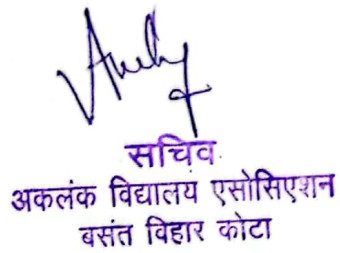 सचिव
अकलंक विद्यालय एसोसिएशन
बसंत विहार कोटा